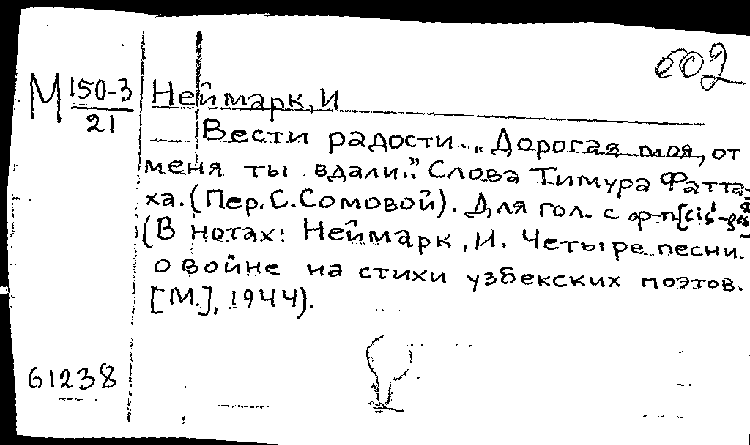 602
М 150-3
21
Неймарк, И
Вести радости. "Дорогая моя, от
меня ты вдали." Слова Тимура Фатта-
ха. (Пер. С. Сомовой). Для гол. с ф-п
(В нотах: Неймарк, И. Четыре песни
о войне на стихи узбекских поэтов.
[М.], 1944).
61238